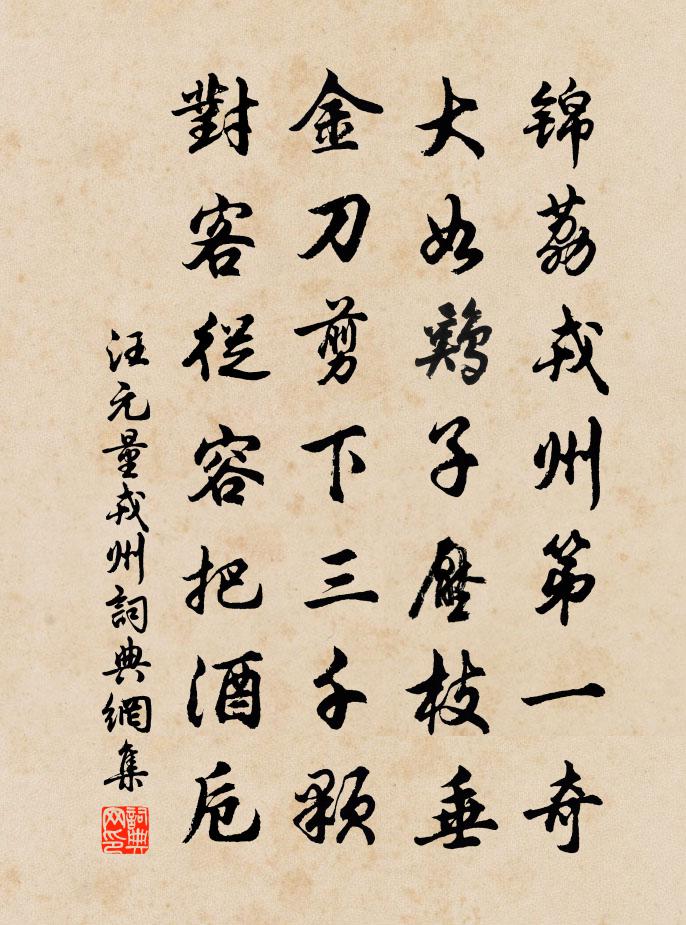 锦荔戎州第一奇
大如鷄子壓枝垂
金刀剪下三千顆
對客從容把酒卮
汪元量戎州詞典網集
詞典網印